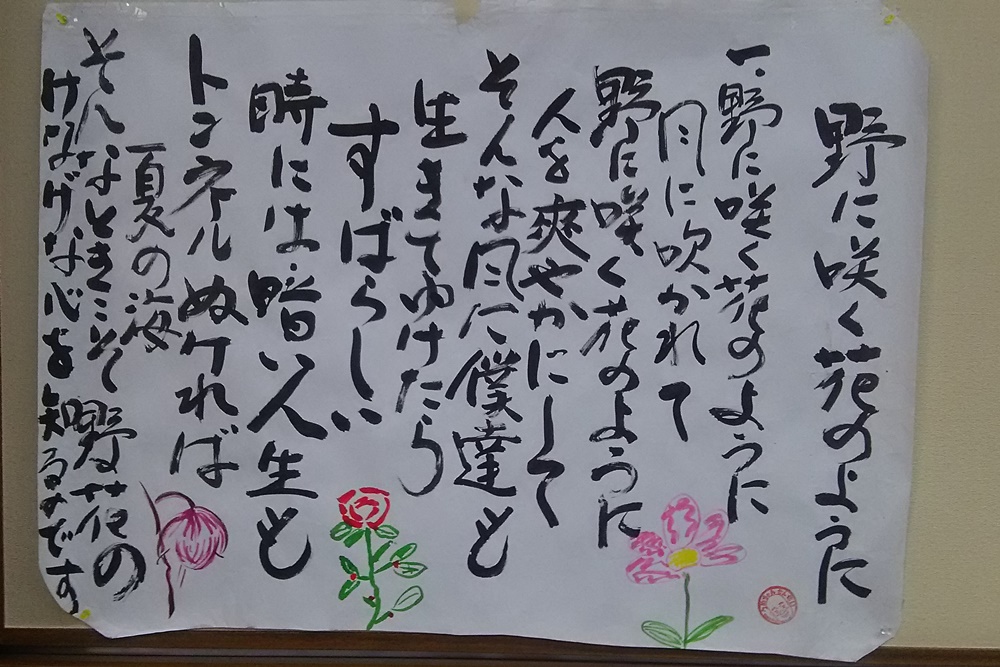 野に咲く花のように
一、野に咲く花のように
風に吹かれて
野に咲く花のように
人を爽やかにして
そんな風に僕達と
生きてゆけたら
すばらしい
時には暗い人生も
トンネルぬケれば
夏の海
そんなときこそ野花の
けなげな心を知るのです